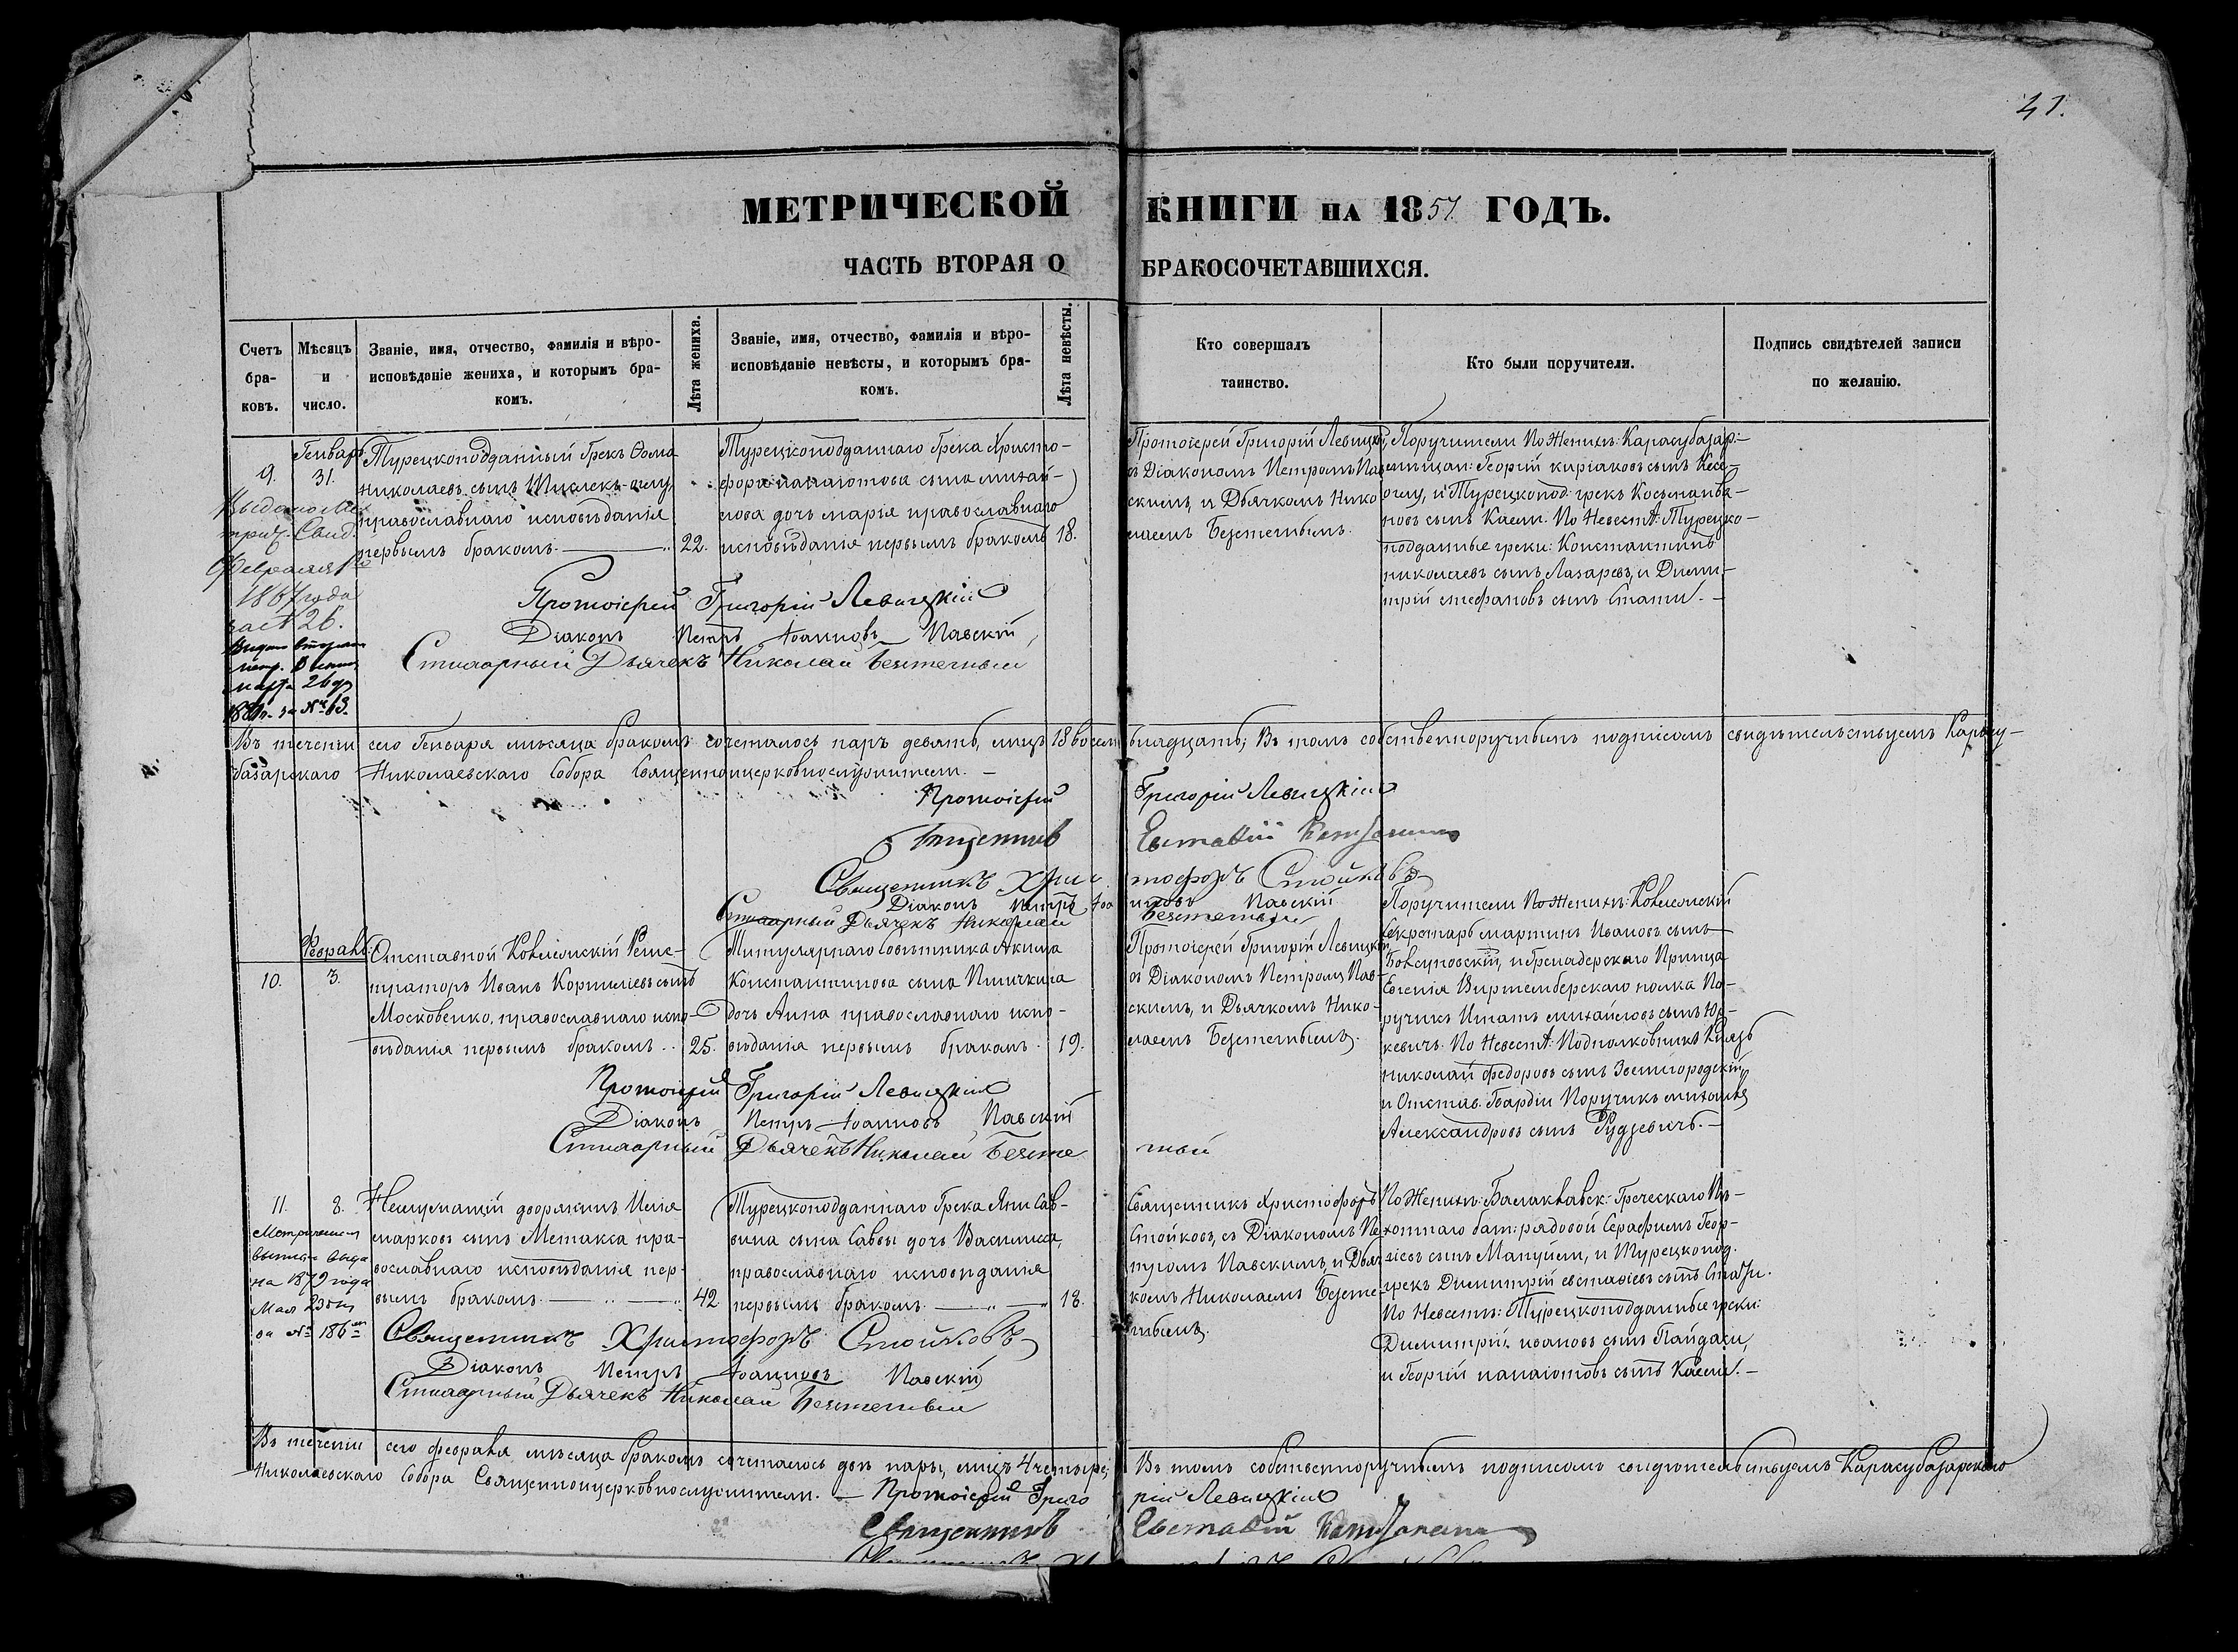 41.
МЕТРИЧЕСКОЙ КНИГИ НА 1851 ГОДЪ.
ЧАСТЬ ВТОРАЯ О БРАКОСОЧЕТАВШИХСЯ.
Счетъ бра-ковъ.
Мѣсяцъ и число.
Званіе, имя, отчество, фамилія и вѣро-
исповѣданіе жениха, и которымъ бра-
комъ.
Лѣта жениха.
Званіе, имя, отчество, фамилія и вѣро-
исповѣданіе невѣсты, и которымъ бра-
комъ.
Лѣта невѣсты.
Кто совершалъ
таинство.
Кто были поручители.
Подпись свидѣтелей записи
по желанію.
9.
Генварь
31.
Турецкоподданный Грекъ Ѳома
Николаевъ сынъ
православнаго исповѣданія
первымъ бракомъ.
22.
Турецкоподданнаго Грека Христо-
фора Панаіотова сына Михай-
лова дочь Марія православнаго
исповѣданія первымъ бракомъ
18.
Протоіерей Григорій Левицкій,
съ Діакономъ Петромъ Пав-
скимъ, и Дьячкомъ Нико-
лаемъ Безстетнымъ.
Поручители По Женихѣ: Карасубазар:
Георгій Киріаковъ сынъ
оглу, и Турецкопод: грекъ Косьма Ива-
новъ сынъ Каели. По Невестѣ: Турецко-
подданные греки: Константинъ
Николаевъ сынъ Лазаревъ, и Дими-
трій Стефановъ сынъ Стати.
Выдано Ме-
трич. Свид.
Февраля
года
за № 26.
Протоіерей Григорій Левицкій
Діаконъ Петръ Іоанновъ Павскій
Стихарный Дьячекъ Николай
Въ теченіи сего Генваря мѣсяца бракомъ сочеталось паръ девять, лицъ 18 восемьнадцать; Въ томъ собственноручнымъ подписомъ свидѣтельствуемъ Карасу-
базарскаго Николаевскаго Собора Священноцерковнослужители.
Протоіерей Григорій Левицкій
Священникъ Евстафій
Священникъ Христофоръ Стойковъ
Діаконъ Петръ Іоанновъ Павскій
Стихарный Дьячекъ Николай
Февраль
10.
3.
Отставной Коллежскій Реги-
страторъ Иванъ Корниліевъ сынъ
Московенко, православнаго испо-
вѣданія первымъ бракомъ
25.
Титулярнаго Совѣтника Акима
Константинова сына Птичкина
дочь Анна православнаго испо-
вѣданія первымъ бракомъ
19.
Протоіерей Григорій Левицкій
съ Діакономъ Петромъ Пав-
скимъ, и Дьячкомъ Нико-
лаемъ Безстетнымъ.
Поручители По Женихѣ: Коллежскій
Секретарь Мартинъ Ивановъ сынъ
и Гренадерскаго Принца
Евгенія Виртембергскаго полка По-
ручикъ Игнатъ Михайловъ сынъ Юр-
кевичъ. По Невестѣ: Подполковникъ Князь
Николай Федоровъ сынъ Звенигородскій,
и Отстав. Гвардіи Поручикъ Михаилъ
Александровъ сынъ Рудзевичъ.
Протоіерей Григорій Левицкій
Діаконъ Петръ Іоанновъ Павскій
Стихарный Дьячекъ Николай
11.
8.
Нежинскій дворянинъ Илія
Марковъ сынъ Метакса пра-
вославнаго исповѣданія пер-
вымъ бракомъ
42
Турецкоподданнаго Грека Яни Сав-
вина сына Саввы дочь Василиса,
православнаго исповѣданія
первымъ бракомъ
18.
Священникъ Христофоръ
Стойковъ, съ Діакономъ Пе-
тромъ Павскимъ, и Дьяч-
комъ Николаемъ Безстет-
нымъ.
По Женихѣ: Балаклавск: Греческаго Пѣ-
хотнаго бат: рядовой Серафимъ Геор-
гіевъ сынъ Мануили, и Турецкопод.
грекъ Димитрій Евстафіевъ сынъ
По Невестѣ: Турецкоподданные греки:
Димитрій Ивановъ сынъ Пайдаси,
и Георгій Панаіотовъ сынъ Каели.
выда
на 1879 года
Мая 23 дня
за № 186
Священникъ Христофоръ Стойковъ
Діаконъ Петръ Іоанновъ Павскій
Стихарный Дьячекъ Николай
Въ теченіи сего февраля мѣсяца бракомъ сочеталось двѣ пары, лицъ 4 четыре; Въ томъ собственноручнымъ подписомъ свидѣтельствуемъ Карасубазарскаго
Николаевскаго Собора Священноцерковнослужители. Протоіерей Григорій Левицкій
Священникъ Евстафій